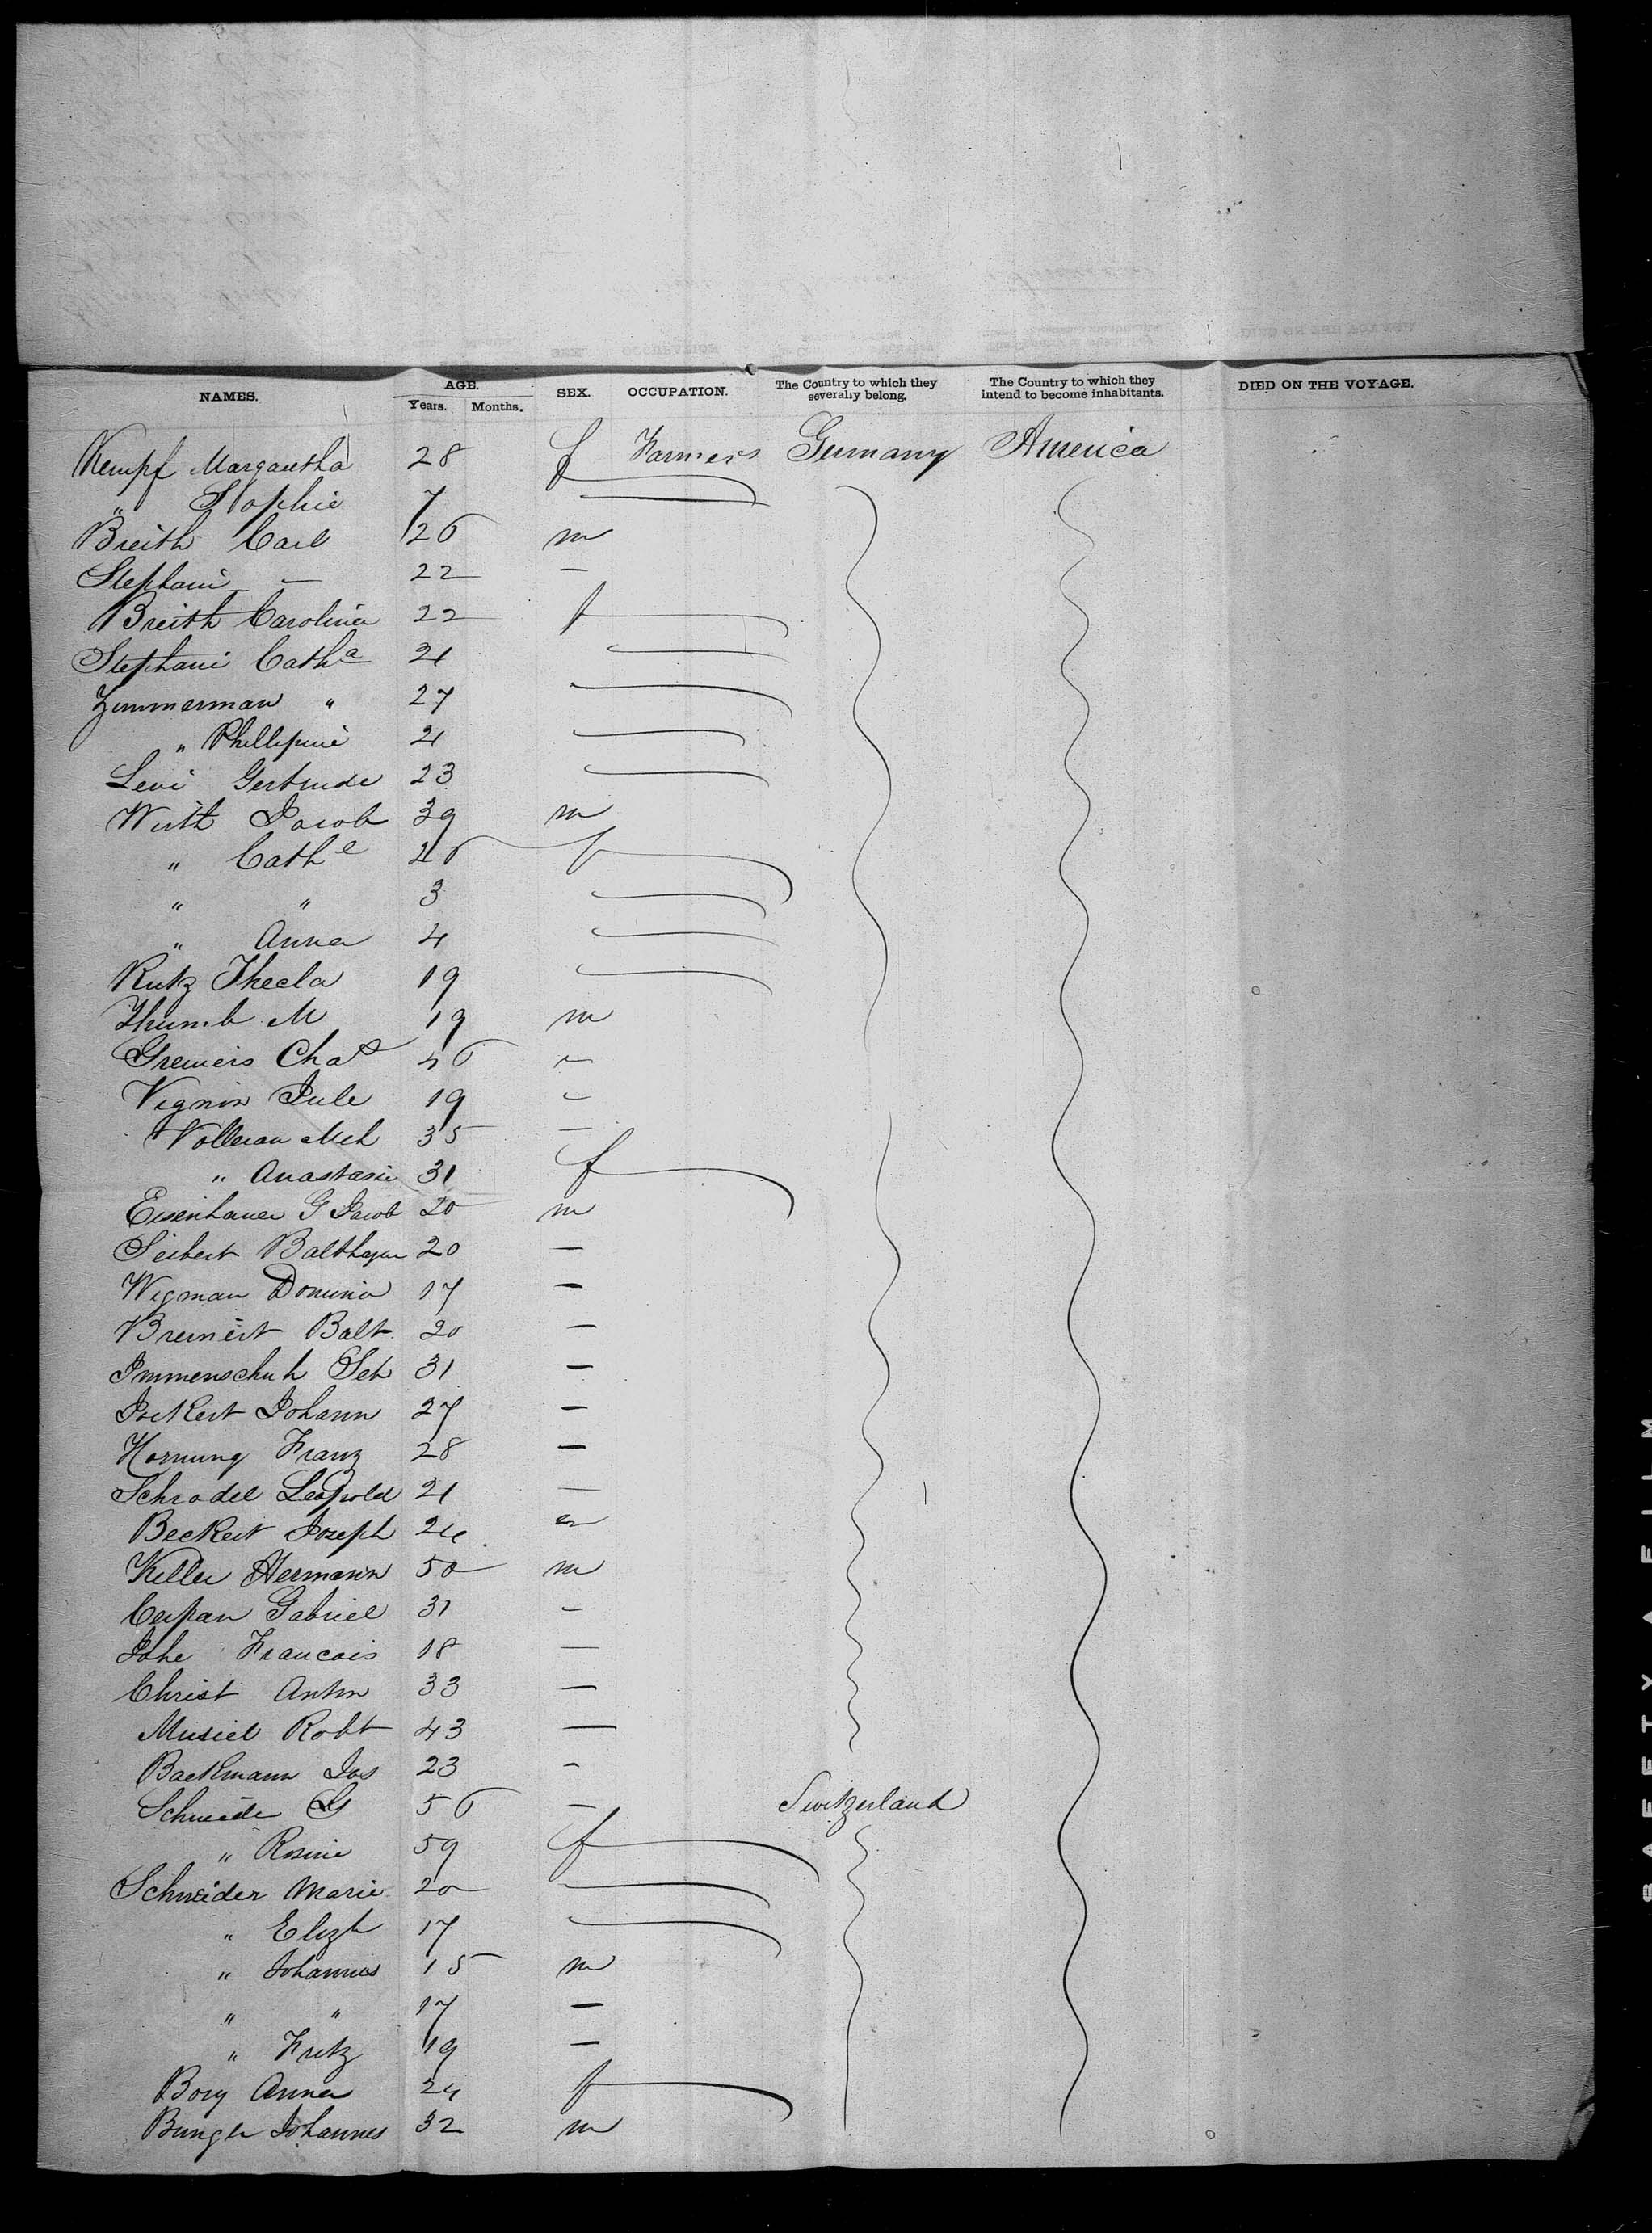 NAMES. AGE. Years. Months. SEX. OCCUPATION. The Country to which they severally belong. The Country to which they intend to become inhabitants. DIED ON THE VOYAGE.
Kempf Margaretha 28 f Farmers Germany America
" Sophie 7
Breith Carl 26 m
Stephani — 22 —
Breith Carolina 22 f
Stephani Cath^a 21
Zimmerman " 27
" Phillipine 21
Levi Gertrude 23
Wirth Jacob 39 m
" Cath^e 26 f
" " 3
" Anna 4
Rutz Thecla 19
Thumb M 19 m
Gremeis Cha^s 46 —
Vignin Jule 19 —
35 —
" Anastasie 31 f
Eisenhauer G Jacob 20 m
Seibert Balthazar 20 —
Wigman 17 —
Balt. 20 —
Immenschuh Seb 31 —
Johann 27 —
Hornung Franz 28 —
Schrodel Leopold 21 —
Beckert Joseph 24
Keller Hermann 50 m
Gabriel 31 —
Francois 18 —
Christ Anton 33 —
Musiel Robt 43 —
Backmann Jos 23 —
Schneider G 56 — Switzerland
" Rosine 59 f
Schneider Marie 20
" Elizh 17
" Johannes 15 m
" " 17 —
" Fritz 19 —
Bory Anna 24 f
Bunger Johannes 32 m
SAFETY FILM